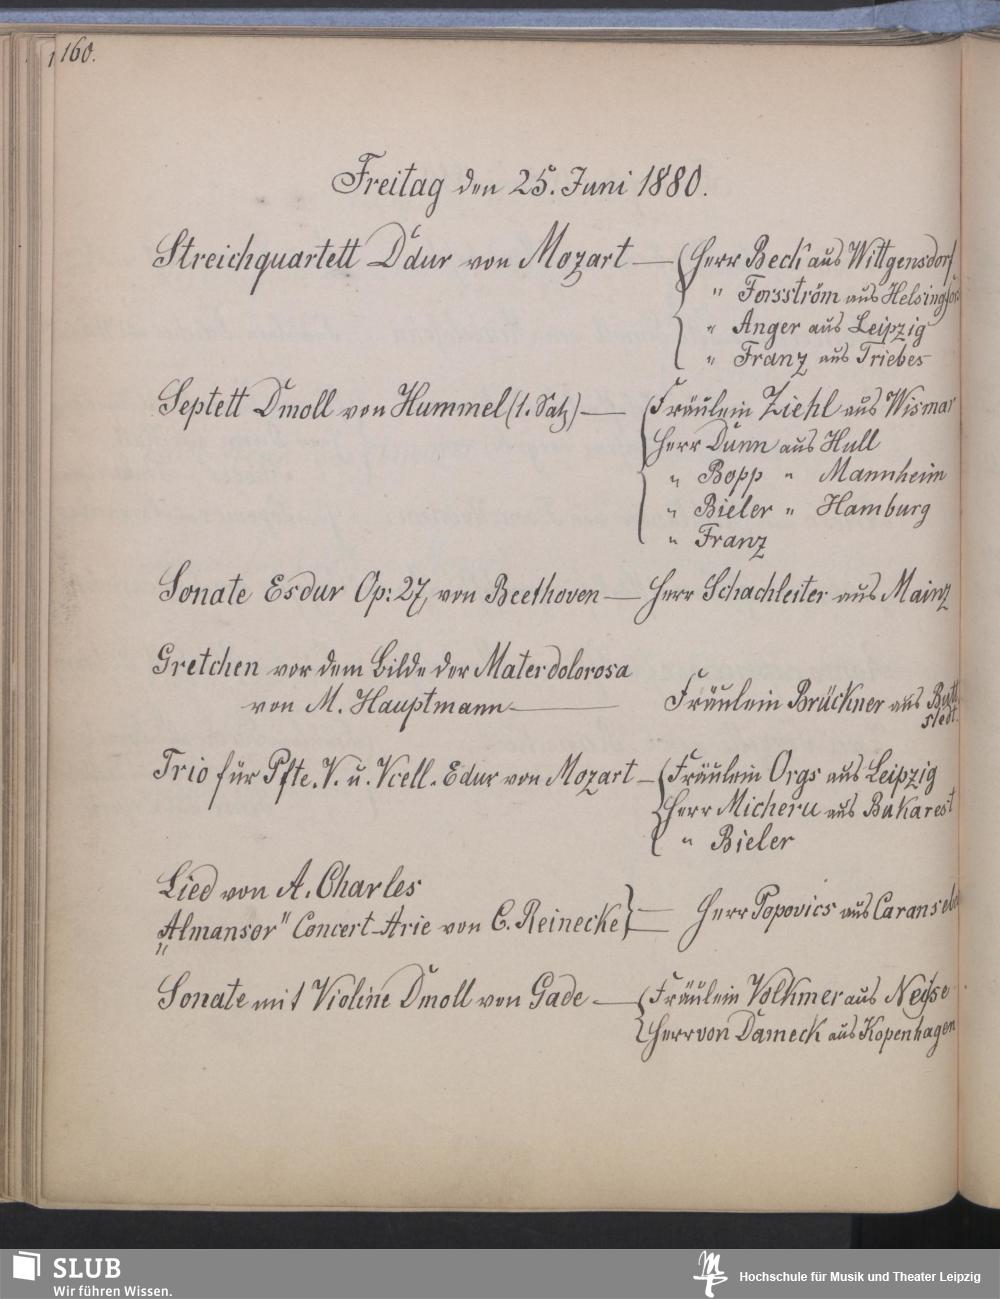 160.
Freitag den 25. Juni 1880.
Streichquartett Ddur von Mozart — Herr Beck aus Wittgensdorf
" Forsström aus Helsingfors
" Anger aus Leipzig
" Franz aus Triebes
Septett Dmoll von Hummel (1. Satz) — Fräulein Ziehl aus Wismar
Herr Dunn aus Hull
" Bopp " Mannheim
" Bieler " Hamburg
" Franz
Sonate Esdur Op: 27, von Beethoven — Herr Schachleiter aus Mainz
Gretchen vor dem Bilde der Mater dolorosa
von M. Hauptmann — Fräulein Brückner aus Butt
stedt.
Trio für Pfte. V. u. Vcell. Edur von Mozart — Fräulein Orgs aus Leipzig
Herr Micheru aus Bukarest
" Bieler
Lied von A. Charles
"Almansor" Concert-Arie von C. Reinecke — Herr Popovics aus
Sonate mit Violine Dmoll von Gade — Fräulein Volkmer aus Neisse
Herr von Dameck aus Kopenhagen
SLUB
Wir führen Wissen.
Hochschule für Musik und Theater Leipzig